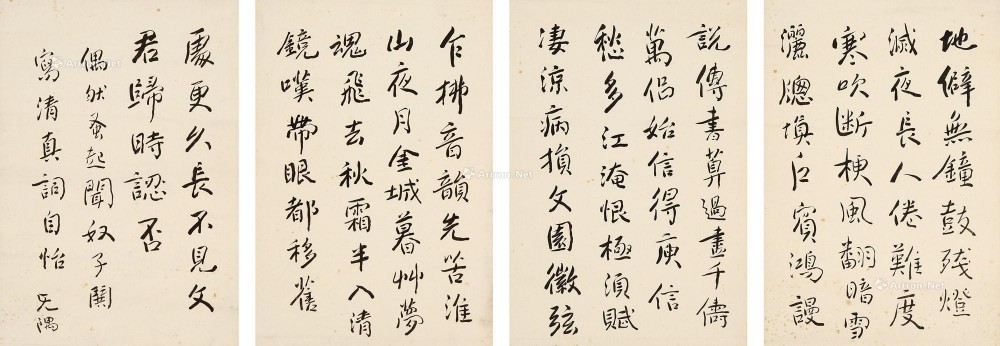 地僻無鐘鼓殘燈
滅夜長人倦難度
寒吹断梗風翻暗雪
灑牕填户賓鴻謾
說傳書算過盡千儔
萬侣始信得庾信
愁多江淹恨極須賦
凄涼病損文園徽弦
乍拂音韻先苦淮
山夜月金城暮艸夢
魂飛去秋霜半入清
鏡嘆帶眼都移舊
處更久長不見文
君歸時認否
偶然蚤起聞奴子
寫清真詞自怡 隅
Artron.Net
Artron.Net
Artron.Net
Artron.Net